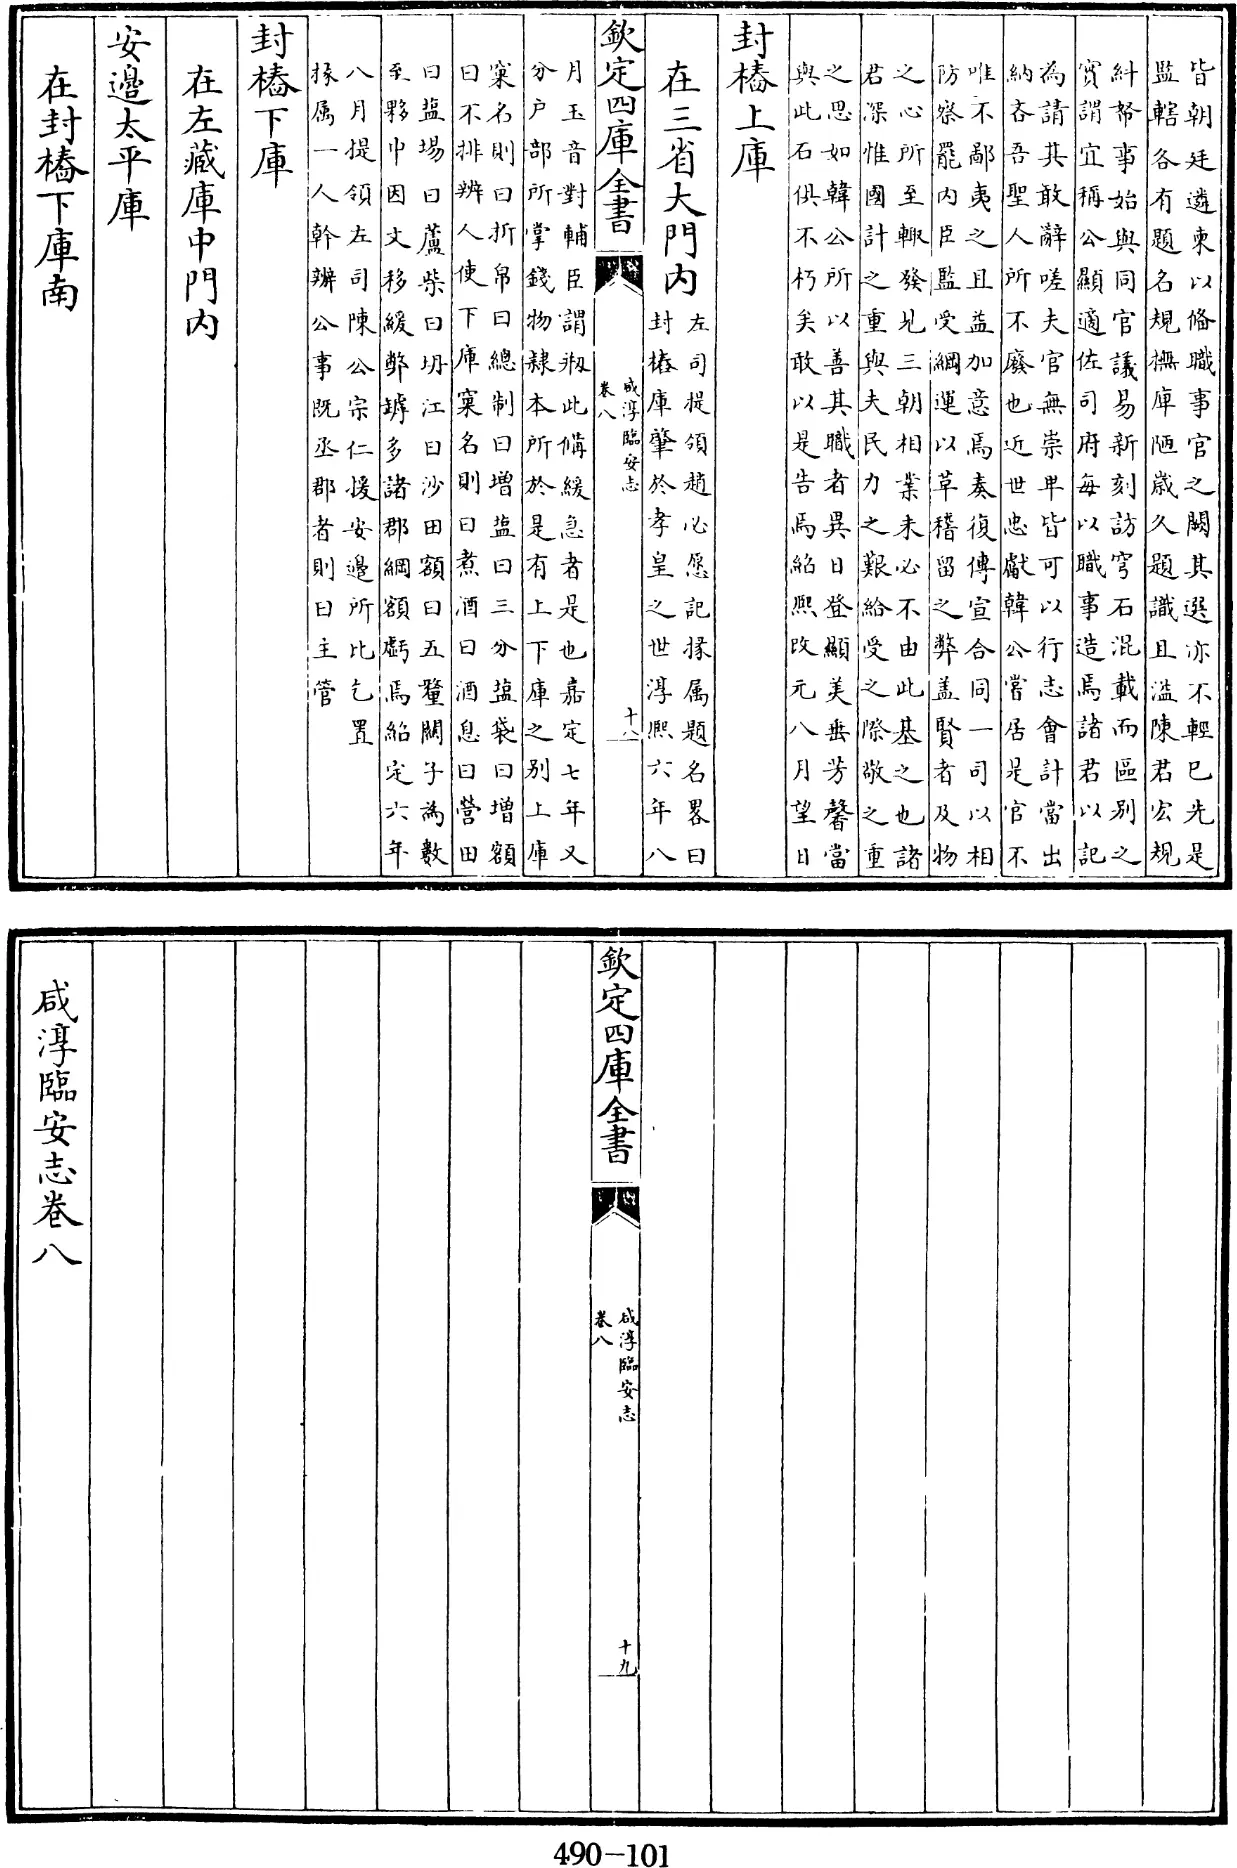 皆朝廷遴柬以脩職事官之闕其選亦不輕已先是
監轄各有題名規橅庫陋歲久題識且溢陳君宏規
糾帑事始與同官議易新刻訪穹石混載而區別之
實謂宜稱公顯適佐司府每以職事造焉諸君以記
為請其敢辭嗟夫官無崇卑皆可以行志會計當出
納吝吾聖人所不廢也近世忠獻韓公嘗居是官不
唯不鄙夷之且益加意焉奏復傳宣合同一司以相
防察罷內臣監受綱運以草稽留之弊盖賢者及物
之心所至輙發見三朝相業未必不由此基之也諸
君深惟國計之重與夫民力之艱給受之際敬之重
之思如韓公所以善其職者異日登顯美垂芳馨當
與此石俱不朽矣敢以是告焉紹熙改元八月望日
封樁上庫
在三省大門内
左司提領趙必愿記掾属題名畧曰
封樁庫肇於孝皇之世淳熙六年八
欽定四庫全書
咸淳臨安志
卷八
十八
月玉音對輔臣謂椒此備緩急者是也嘉定七年又
分户部所掌錢物隷本所於是有上下庫之别上庫
窠名則曰折帛曰總制曰增塩曰三分塩袋曰增額
曰不排辨人使下庫窠名則曰煮酒曰酒息曰營田
曰塩場曰蘆柴曰坍江曰沙田額曰五釐關子為數
至夥中因文移緩弊罅多諸郡綱額虧焉紹定六年
八月提領左司陳公宗仁援安邉所比乞置
掾属一人幹辨公事既丞郡者則曰主管
封樁下庫
在左藏庫中門内
安邉太平庫
在封樁下庫南
欽定四庫全書
咸淳臨安志
卷八
十九
咸淳臨安志卷八
490-101